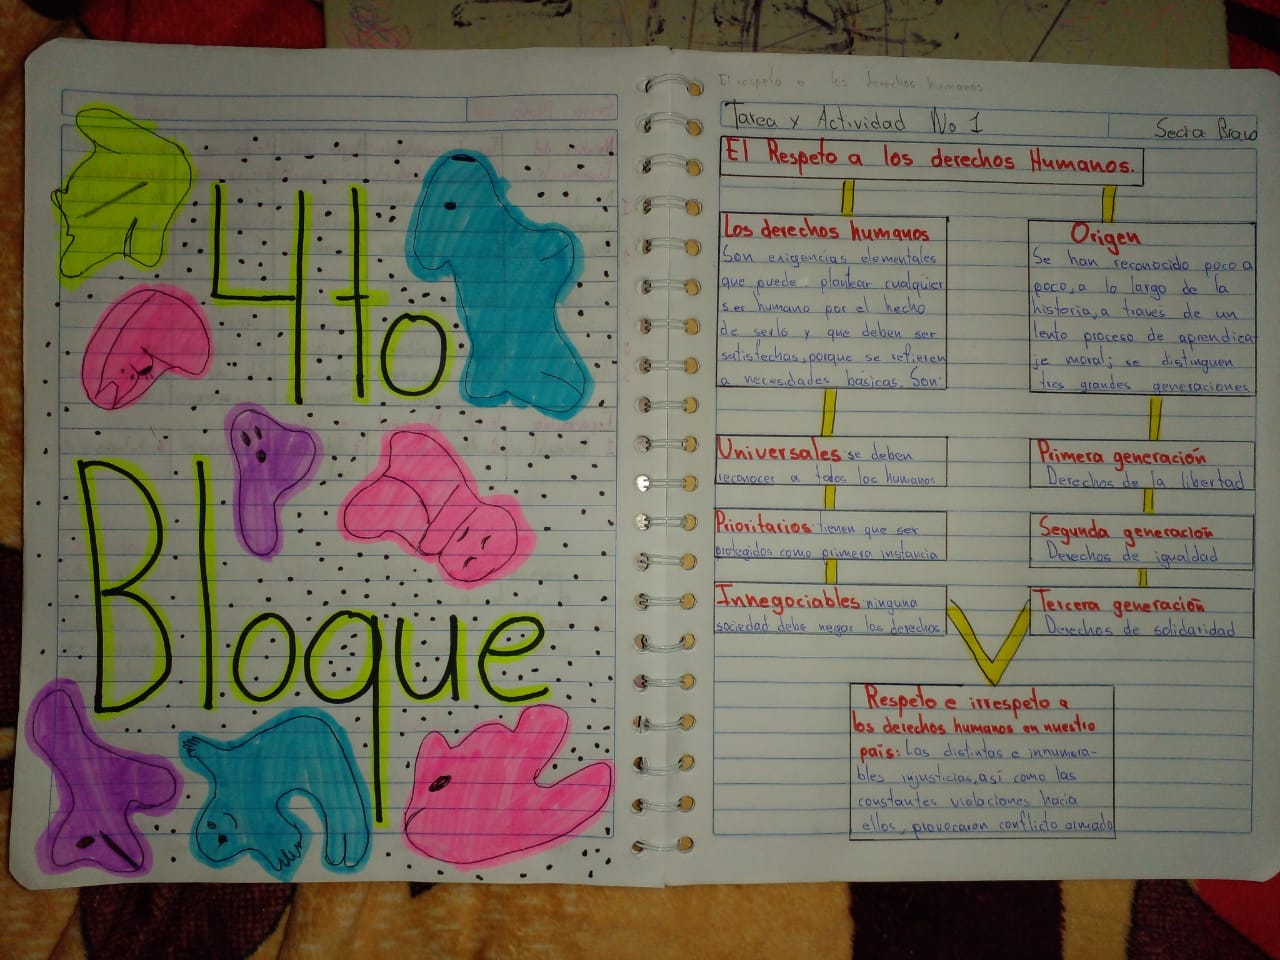 4to
Bloque
El respeto a los derechos humanos
Tarea y Actividad No 1
Secia Bravo
El Respeto a los derechos Humanos.
Los derechos humanos
Son exigencias elementales
que puede plantear cualquier
ser humano por el hecho
de serlo y que deben ser
satisfechas, porque se refieren
a necesidades básicas. Son:
Universales se deben
reconocer a todos los humanos
Prioritarios tienen que ser
protegidos como primera instancia
Innegociables ninguna
sociedad debe negar los derechos
Origen
Se han reconocido poco a
poco, a lo largo de la
historia, a traves de un
lento proceso de aprendiza
je moral; se distinguen
tres grandes generaciones
Primera generación
Derechos de la libertad
Segunda generación
Derechos de igualdad
Tercera generación
Derechos de solidaridad
Respeto e irrespeto a
los derechos humanos en nuestro
país: Las distintas e innumera-
bles injusticias, así como las
constantes violaciones hacia
ellos, provocaron conflicto armado